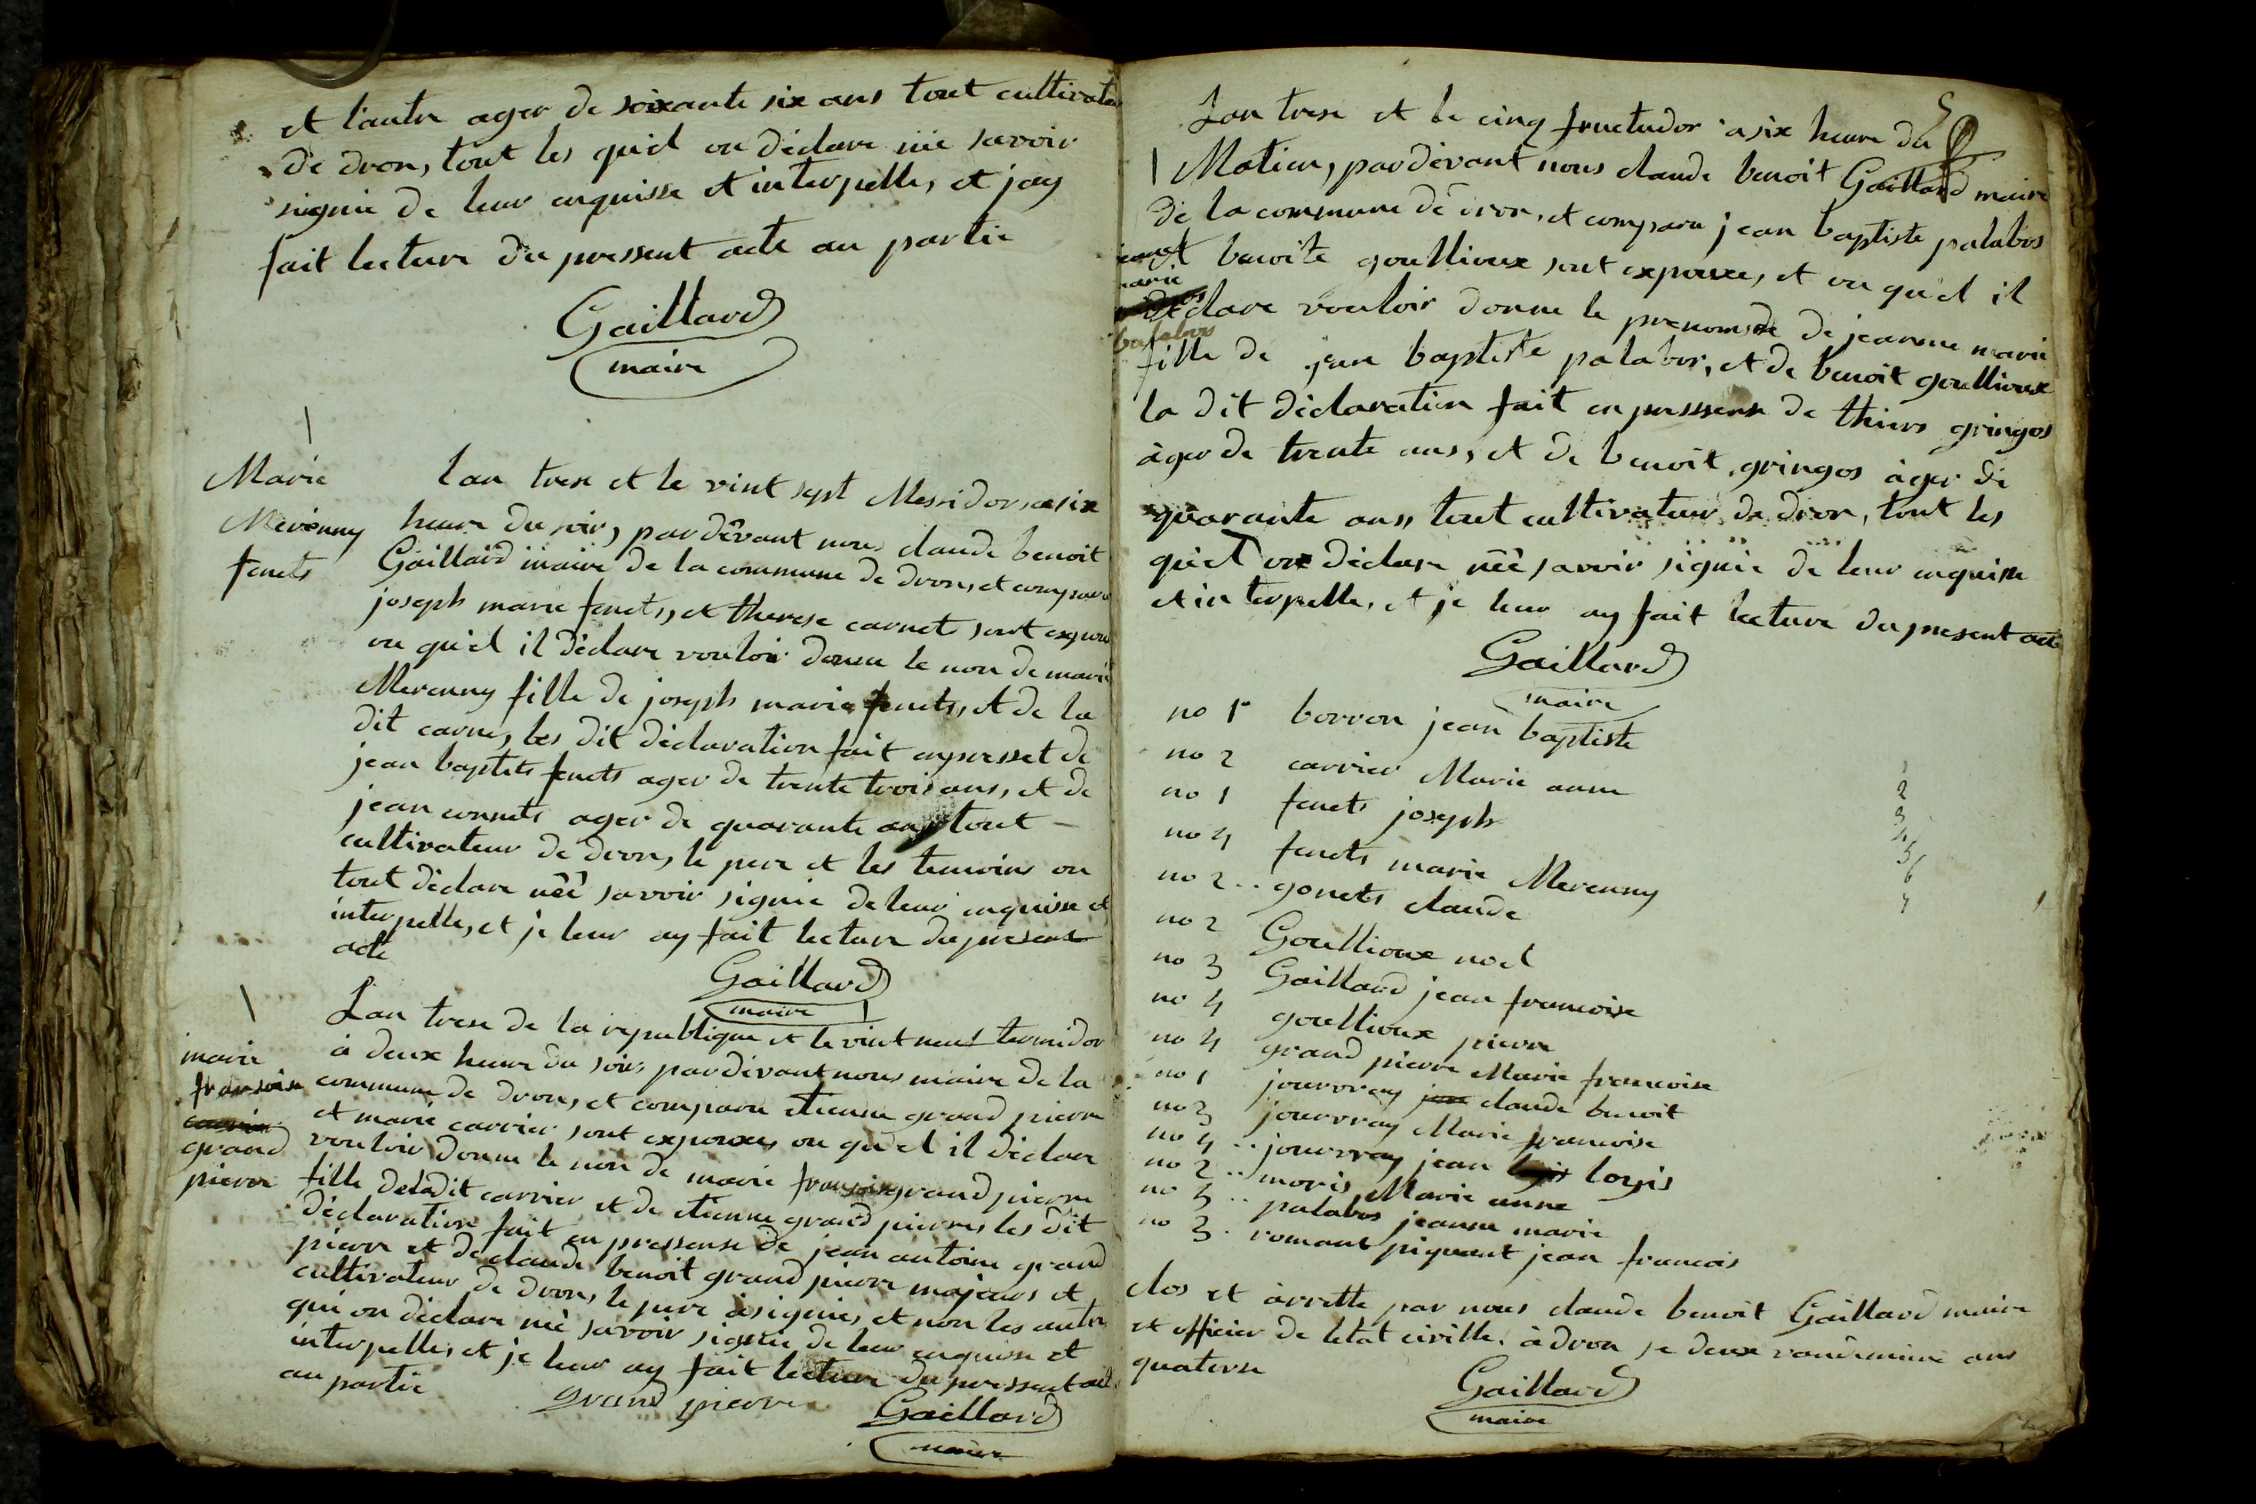 et l'autre ager de soixante six ans tout cultivateu
de dron, tout les quel on déclare nie savoir
signie de leur enquisse et interpelle, et jay
fait lecture du pressent acte au partie
Gaillard
maire
Marie
Merenny
fenets
lan trese et le vint sept Messidor a six
heure du soir, pardevant nous claude benoit
Gaillard maire de la commune de dron, et compara
joseph marie fenets, et therese carnet sont expoux
ou quel il déclare vouloir donne le non de marie
Merenny fille de joseph marie fenets, et de la
dit carne, les dit déclaration fait en presset de
jean baptets fenets ager de trente trois ans, et de
jean connets ager de quarante ans tout
cultivateur de dron, le pere et les temoins on
tout déclare néé savoir signie de leur enquisse et
interpelle, et je leur ay fait lecture du present
acte
Gaillard
maire
marie
fransoise
grand
pierre
Lan trese de la republique et le vint neuf termidor
à deux heure du soir, pardevant nous maire de la
commune de dron, et compara etienne grand pierre
et marie carrier sont expouxes, ou quel il déclare
vouloir donne le non de marie fransoise grand pierre
fille de la dit carrier et de etienne grand pierre, les dit
déclaration fait en pressense de jean antoine grand
pierre et de claude benoit grand pierre majeurs et
cultivateur de dron, le pere a signie, et non les autre
qui on déclare nié savoir signie de leur enquisse et
interpelle, et je leur ay fait lecture du pressent acte
au partie
grand pierre
Gaillard
maire
5
Lan trese et le cinq fructudor a six heure du
Matien, pardevant nous claude benoit Gaillard maire
de la commune de dron, et compara jean baptiste palabos
et benoite goullioux sont expouxe, et ou quel il
déclare vouloir donne le prenoms de jeanne marie
fille de jean baptiste palabos, et de benoit goullioux
la dit déclaration fait en pressense de thiers gringos
àger de trente ans, et de benoit gringos àger de
quarante ans tout cultivateur de dron, tout les
quel on déclare néé savoir signie de leur enquisse
et interpelle, et je leur ay fait lecture du present acte
Gaillard
maire
no 1 borron jean baptiste
no 2 carrier Marie anne
no 1 fenets joseph
no 4 fenets marie Merenny
no 2 .. gonets claude
no 2 Goullioux noel
no 3 Gaillard jean francoise
no 4 goullioux pierre
no 4 grand pierre Marie francoise
no 1 jourvray claude benoit
no 3 jourvray Marie francoise
no 4 .. jourvray jean loyis
no 2 .. moris Marie anne
no 5 .. palabos jeanne marie
no 3 . romant piquant jean francois
2
3
4
5
6
7
clos et àrrette par nous claude benoit Gaillard maire
et officier de letat civille. à dron se deux vandemiere ans
quatorse
Gaillard
maire